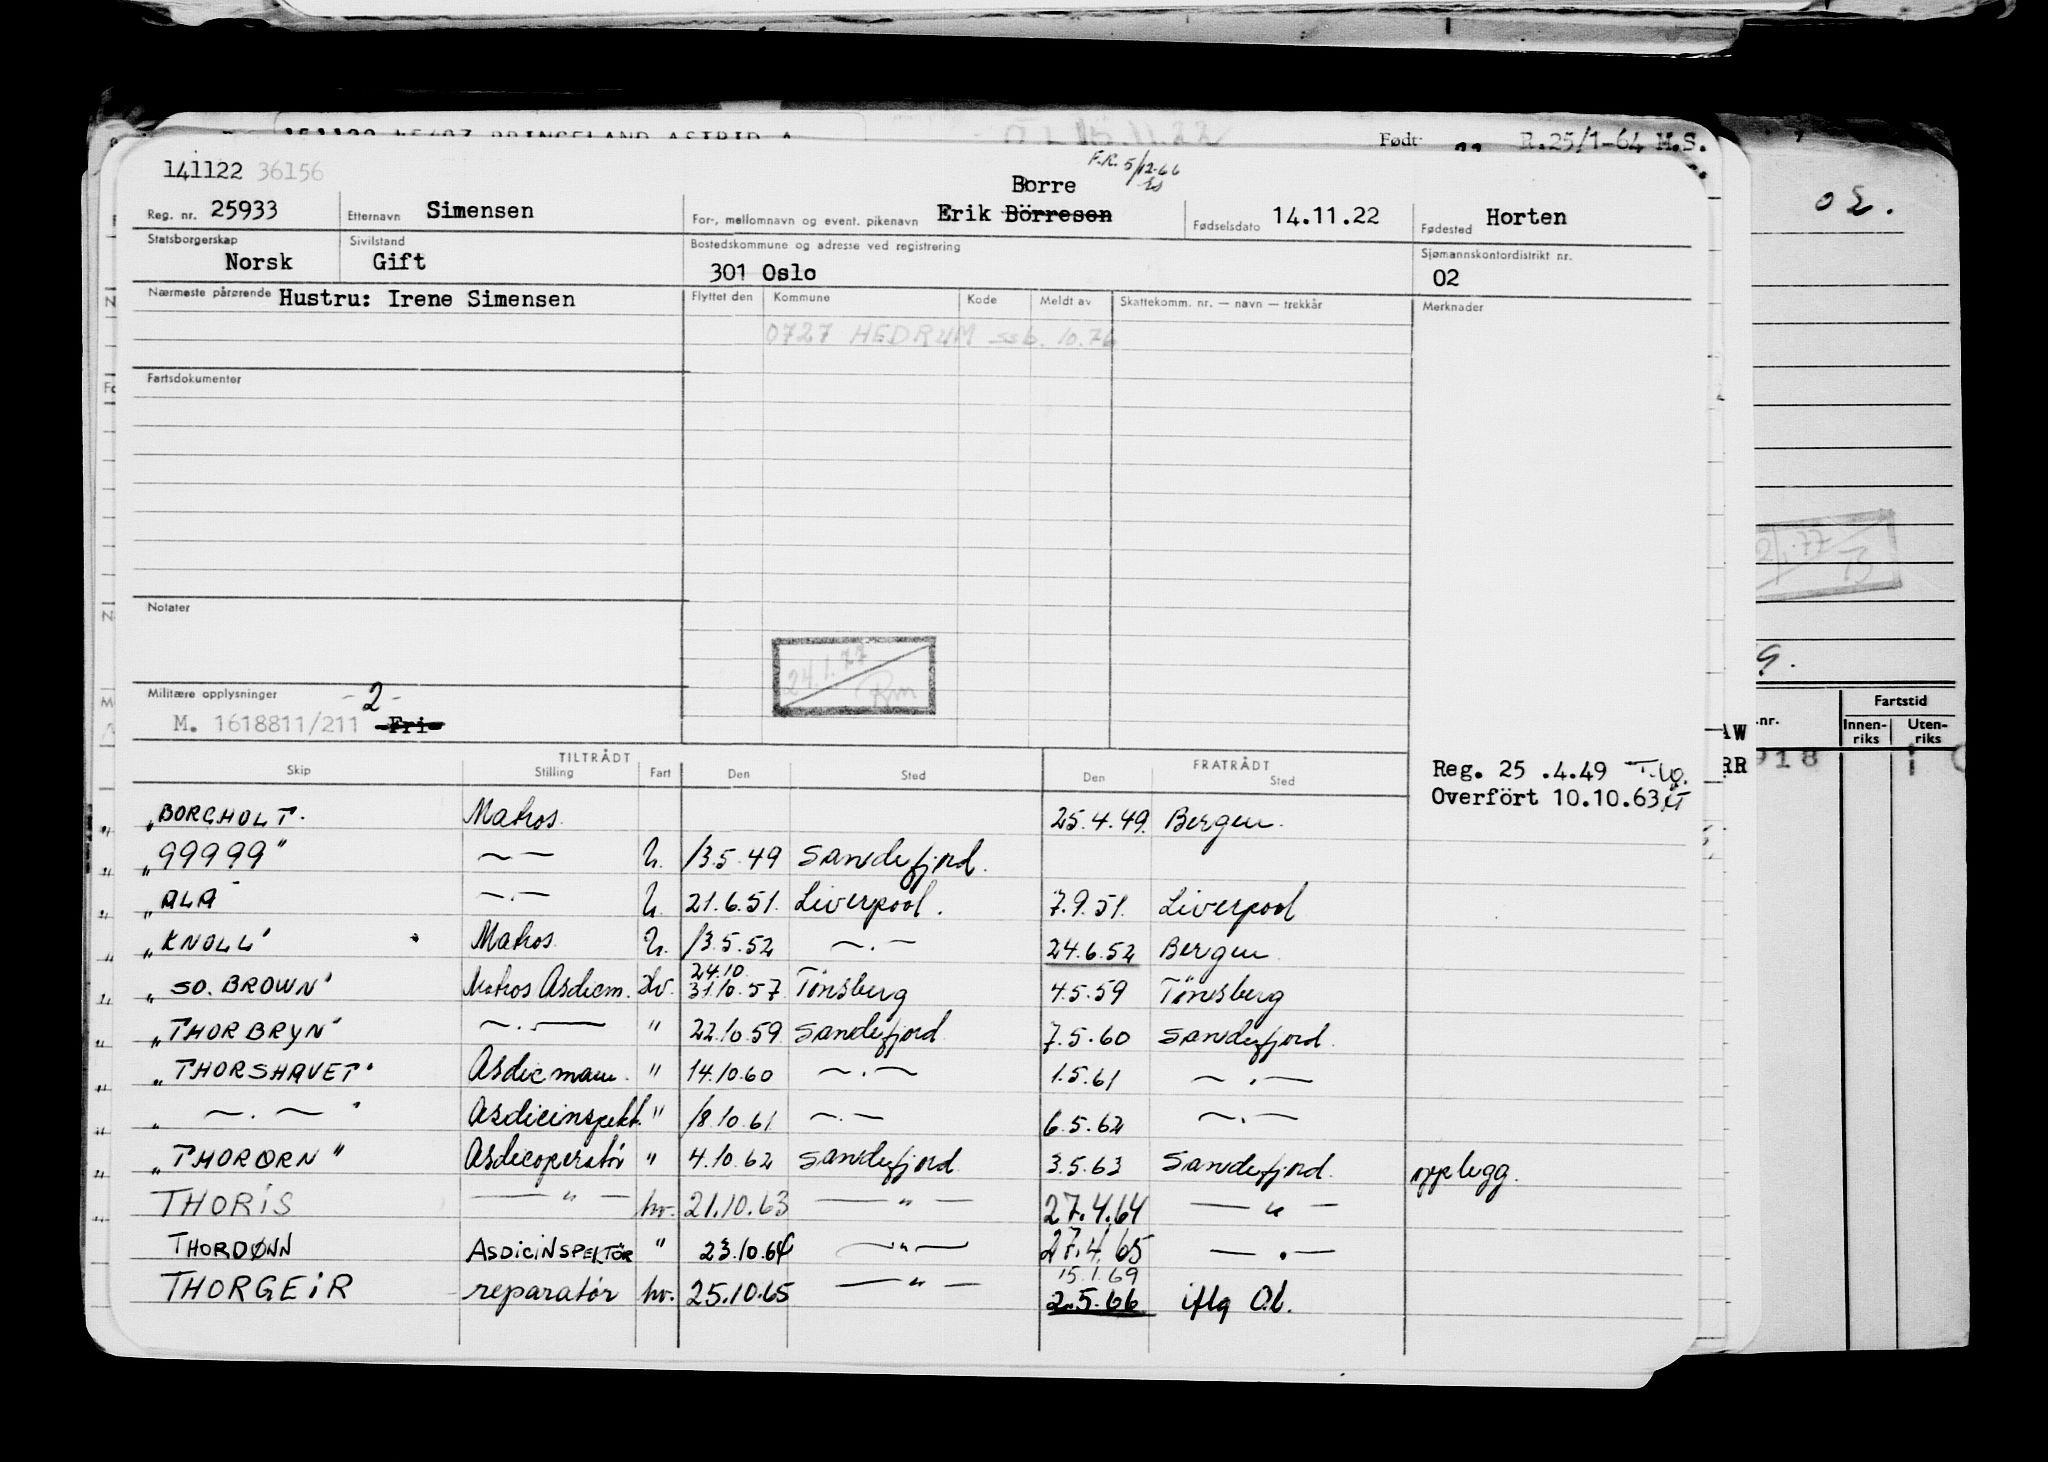 Født R.25/1-64 M.S.
141122 36156
F.R. 5/12-66
Borre
Reg. nr. 25933 Etternavn Simensen For-, mellomnavn og event. pikenavn Erik Börresen Fødselsdato 14.11.22 Fødested Horten
Statsborgerskap Norsk Sivilstand Gift Bostedskommune og adresse ved registrering 301 Oslo Sjømannskontordistrikt nr. 02
Nærmeste pårørende Hustru: Irene Simensen Flyttet den Kommune Kode Meldt av Skattekomm. nr. — navn — trekkår Merknader
0727 HEDRUM ssb. 10.76
Fartsdokumenter
Notater
24.1.77
Rm
Militære opplysninger -2-
M. 1618811/211 Fri
TILTRÅDT FRATRÅDT
Skip Stilling Fart Den Sted Den Sted
Reg. 25 .4.49
Overfört 10.10.63
"BORGHOLT. Matros. 25.4.49. Bergen.
"99999" —〃— U. 13.5.49 Sandefjord.
"ALA" —.— U. 21.6.51. Liverpool. 7.9.51. Liverpool
"KNOLL" Matros. U. 13.5.52 —.— 24.6.52 Bergen
24.10
"SO. BROWN" Matros Asdicm. Hv. 31.10.57 Tönsberg 4.5.59 Tönsberg
"THORBRYN" —.— " 22.10.59 Sandefjord 7.5.60 Sandefjord.
"THORSHAVET" Asdicmann. " 14.10.60 —.— 1.5.61 —.—
" —.— " Asdicinspekt. " 18.10.61 —.— 6.5.62 —.—
"THORØRN" Asdicoperatör " 4.10.62 Sandefjord 3.5.63 Sandefjord. opplegg.
THORIS —"— hv. 21.10.63 —"— 27.4.64 —"—
THORDØNN ASDICINSPEKTÖR " 23.10.64 —"— 27.4.65 —.—
15.1.69
THORGEIR reparatör hv. 25.10.65 —"— 2.5.66 iflg O.l.
02.
2/1.77
9.
nr. Fartstid
Innen-riks Uten-riks
918
AW
RR